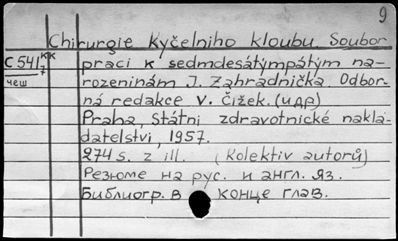 9
Chirurgie kyčelního kloubu. Soubor
C541 кк praci k sedmdesátýmpátým na-
7
чеш rozeninám J. Zahradnička. Odbor-
ná redakce V. Čížek. (идр)
Praha, Státni zdravotnické nakla-
datelstvi, 1957.
274 s. z ill. (Kolektiv autorů)
Резюме на рус. и англ. яз.
Библиогр. в конце глав.